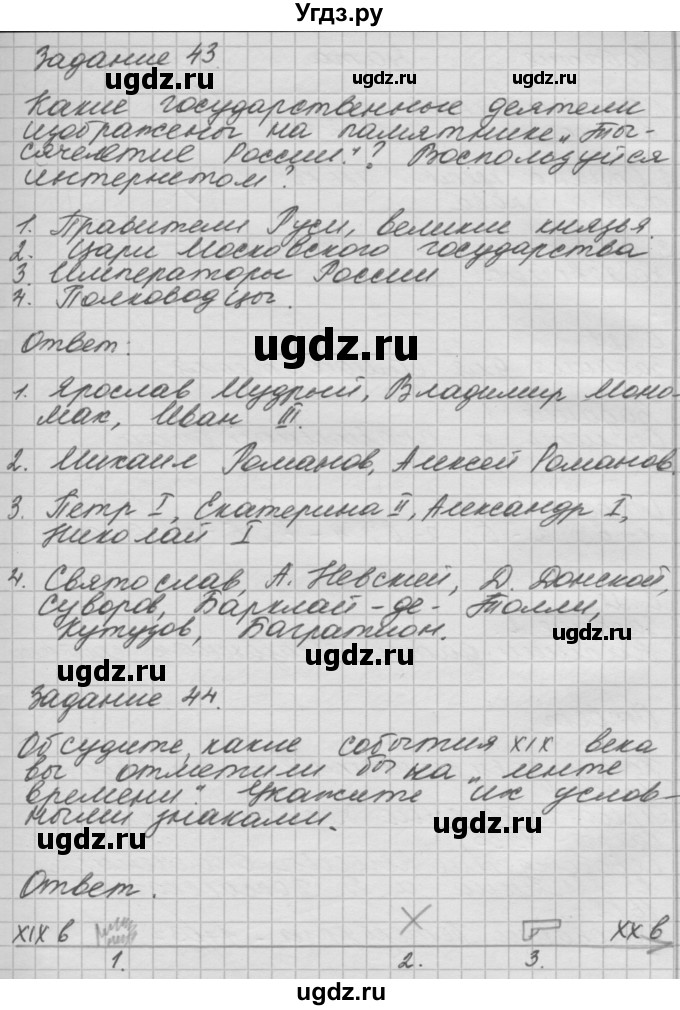 Угдз.ру
Задание 43
ugdz.ru ugdz.ru ugdz.ru
Какие государственные деятели
изображены на памятнике „Ты-
сячелетие России"? Воспользуйся
интернетом?
1. Правители Руси, великие князья.
2. Цари Московского государства
3. Императоры России
4. Полководцы.
Ответ:
ugdz.ru
1. Ярослав Мудрый, Владимир Моно-
мах, Иван III.
2. Михаил Романов, Алексей Романов.
3. Петр I, Екатерина II, Александр I,
Николай I
4. Святослав, А. Невский, Д. Донской,
Суворов, Барклай-де-Толли,
Кутузов, Багратион.
ugdz.ru
ugdz.ru
ugdz.ru
Задание 44.
Обсудите, какие события XIX века
вы отметили бы на „ленте
времени". Укажите их услов-
ными знаками.
ugdz.ru
ugdz.ru
Ответ.
XIX в XX в
1. 2. 3.
ugdz.ru